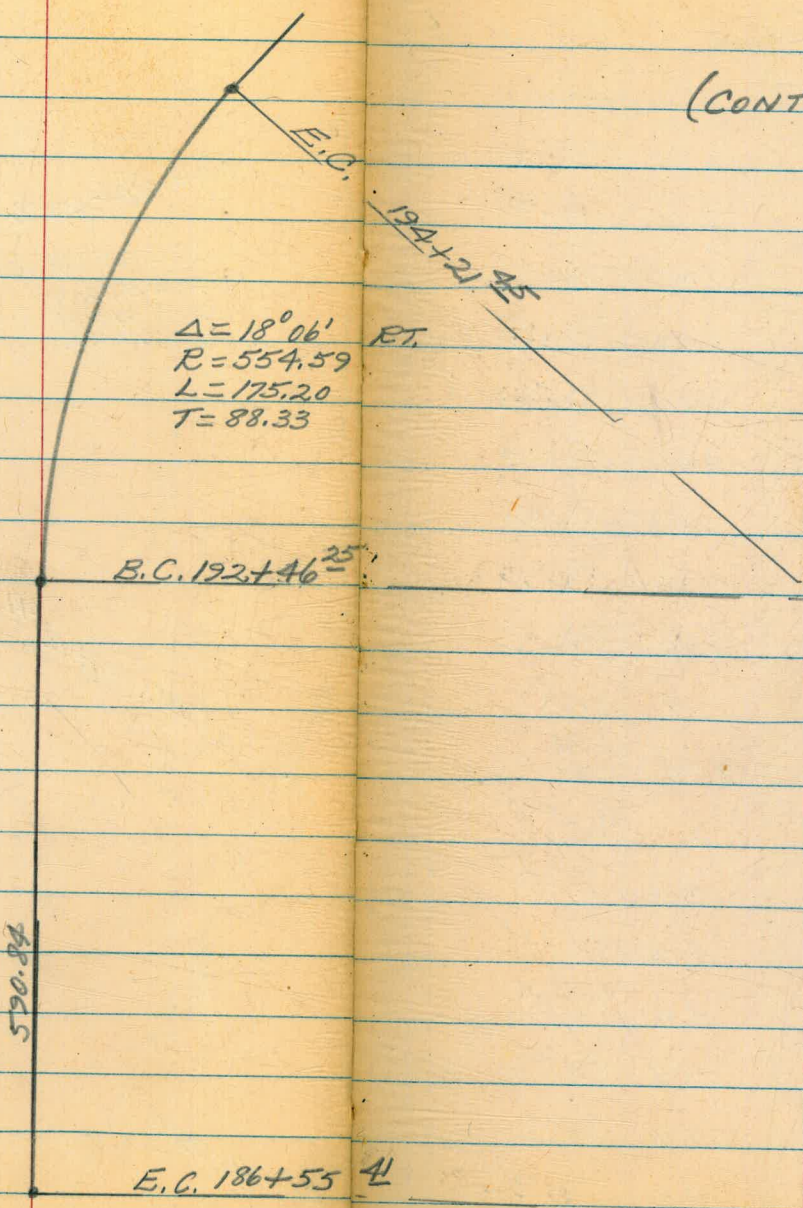 (CONT
E.C. 194+21 45
Δ = 18° 06' RT.
R = 554.59
L = 175.20
T = 88.33
B.C. 192+46 25
590.84
E.C. 186+55 41